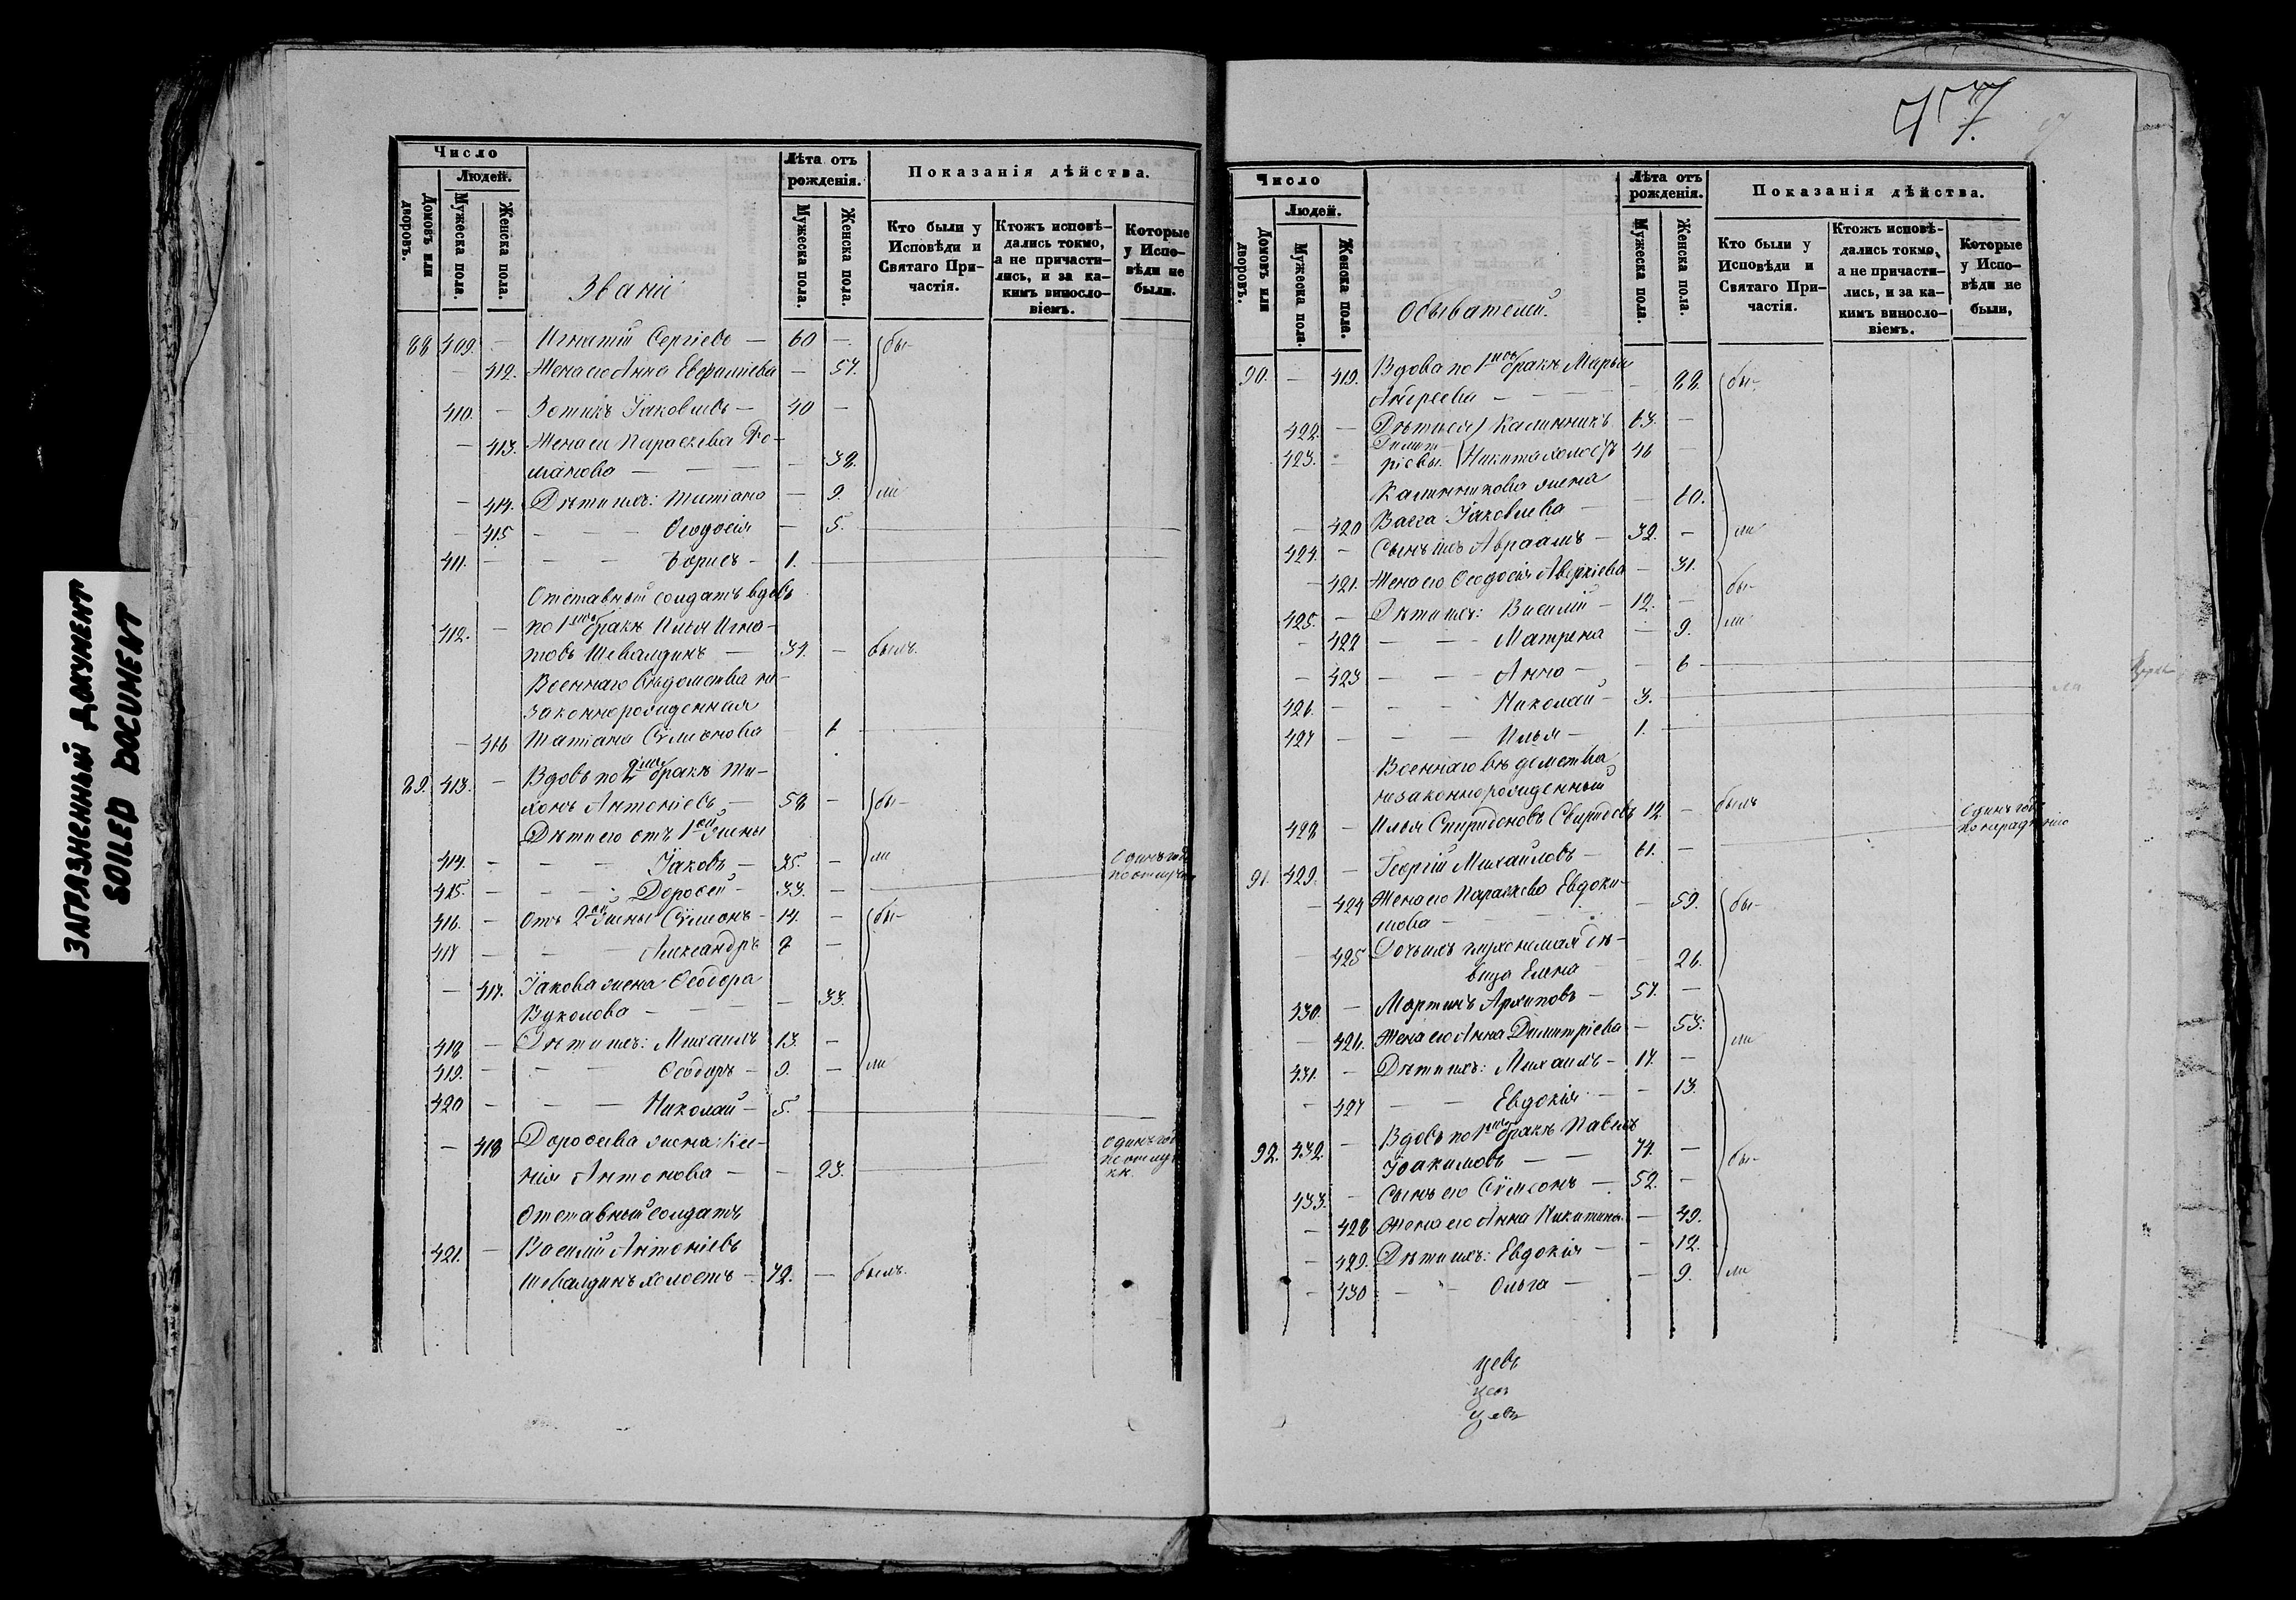 ЗАГРЯЗНЕННЫЙ ДОКУМЕНТ
SOILED DOCUMENT
Число
Людей.
Домовъ или дворовъ.
Мужеска пола.
Женска пола.
Званіи
Лѣта отъ рожденія.
Мужеска пола.
Женска пола.
Показанія дѣйства.
Кто были у Исповѣди и Святаго Причастія.
Ктожъ исповѣдались токмо, а не причастились, и за какимъ винословіемъ.
Которые у Исповѣди не были.
88 409. — Игнатій Сергіевъ — 60 — бы-
— 412. Жена его Анна Евфиміева — 57.
410. — Зотикъ Іаковлевъ — 40 —
— 413. Жена его Параскева Ро-
манова — — — 38.
— 414. Дѣти ихъ: Татіана — 9. ли
— 415 — — Ѳеодосія — 5.
411. — — — Борисъ — 1.
Отставный солдатъ вдовъ
412. — по 1мъ бракѣ Илья Игна-
товъ Шевалдинъ — 37. — былъ.
Военнаго вѣдомства не-
законнорожденная
— 416 Татіана Сѵмеонова — 1
89. 413. — Вдовъ по 2мъ бракѣ Ти-
хонъ Антоніевъ — 58 — бы-
Дѣти его отъ 1ой жены
414. — — — Іаковъ — 35. — ли
415. — — — Дороѳей — 33. — Одинъ годъ по отлуч
416. — Отъ 2ой жены Сѵмеонъ — 14. — бы-
417 — — — Александръ 7 —
— 417. Іакова жена Ѳеодора
Вуколова — — 33.
418 — Дѣти ихъ: Михаилъ 13. —
419. — — — Ѳеодоръ — 9. — ли
420 — — — Николай — 5.
— 418 Дороѳеева жена: Ксе-
нія Антонова — — 23. Одинъ годъ по отлучкѣ.
Отставный солдатъ
421. — Василій Антоніевъ
Шевалдинъ холостъ — 42. — былъ.
47.
Число
Людей.
Домовъ или дворовъ.
Мужеска пола.
Женска пола.
Обывателей.
Лѣта отъ рожденія.
Мужеска пола.
Женска пола.
Показанія дѣйства.
Кто были у Исповѣди и Святаго Причастія.
Ктожъ исповѣдались токмо, а не причастились, и за какимъ винословіемъ.
Которые у Исповѣди не были,
90. — 419. Вдова по 1мъ бракѣ Марья
Андреева — — 88. бы-
422. — Дѣти ея Калинникъ 63. —
423. — Димитріевы. Никита холостъ 46 —
Калинникова жена — 60.
— 420 Васса Іаковлева —
424. — Сынъ ихъ Авраамъ — 32. — ли
— 421. Жена его Ѳеодосія Аверкіева — 31.
425. — Дѣти ихъ: Василій — 12. — бы-
— 422 — — Матрена — 9. ли
— 423 — — Анна — — 6
426. — — — Николай — 3.
427 — — — Илья — 1.
Военнаго вѣдомства
незаконнорожденный
428 — Илья Спиридоновъ Свиридовъ 12 — былъ
91. 429. — Георгій Михайловъ — 61. — Одинъ годъ по нерадѣнію
— 424 Жена его Параскева Евдоки-
мова — — 59. бы-
— 425 Дочь ихъ глухонѣмая дѣ-
вица Елена — 26.
430. — Мартинъ Архиповъ — 57. —
— 426. Жена его Анна Димитріева — 53. ли
431. — Дѣти ихъ: Михаилъ — 17. —
— 427 — — Евдокія — — 13.
92. 432. — Вдовъ по 1мъ бракѣ Павелъ
Іоакимовъ — — 74. — бы-
433. — Сынъ его Сѵмеонъ — 52. —
— 428 Жена его Анна Никитина — 49.
— 429. Дѣти ихъ: Евдокія — — 12.
— 430 — — Ольга — — 9. ли
цевъ